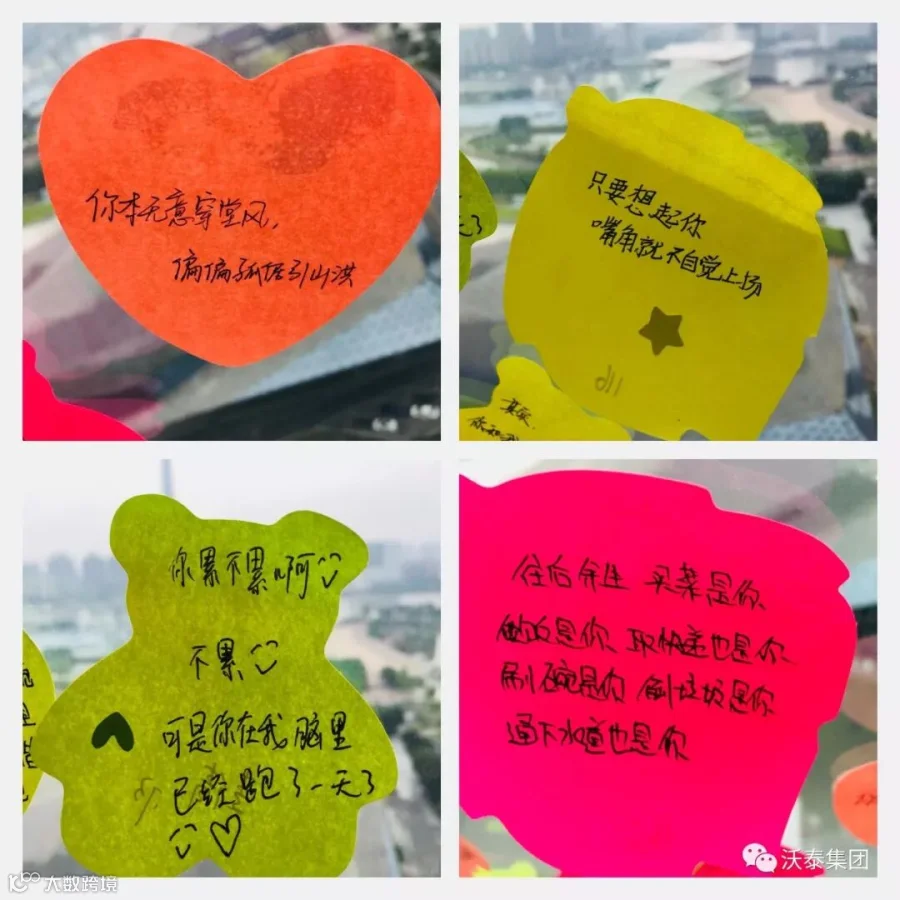 你本无意穿堂风,
偏偏孤倨引山洪
只要想起你
嘴角就不自觉上扬
某某
你累不累啊
不累
可是你在我脑里
已经跑了一天了
往后余生 买菜是你、
做饭是你、取快递也是你、
刷碗是你 倒垃圾是你
通下水道也是你
沃泰集团
大数跨境